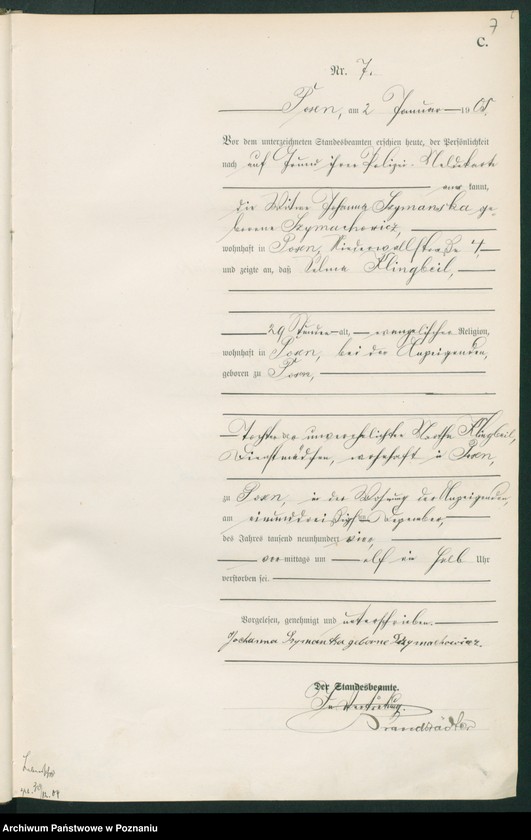 7
C.
Nr. 7.
Posen, am 2 Januar 1905.
Vor dem unterzeichneten Standesbeamten erschien heute, der Persönlichkeit
nach auf Grund ihrer Polizei-Meldekarte
kannt,
die Witwe Johanna Szymanska ge-
borene Szymachowicz,
wohnhaft in Posen, Niederwallstraße 4,
und zeigte an, daß Selma Klingbeil,
29 Stunden alt, evangelischer Religion,
wohnhaft in Posen, bei der Anzeigenden,
geboren zu Posen,
Tochter der unverehelichten Martha Klingbeil,
Dienstmädchen, wohnhaft in Posen,
zu Posen, in der Wohnung der Anzeigenden,
am einunddreißigsten Dezember,
des Jahres tausend neunhundert vier,
vormittags um elf ein halb Uhr
verstorben sei.
Vorgelesen, genehmigt und unterschrieben.
Johanna Szymanska geborne Szymachowicz.
Der Standesbeamte.
In Vertretung.
Brandstädter
Archiwum Państwowe w Poznaniu